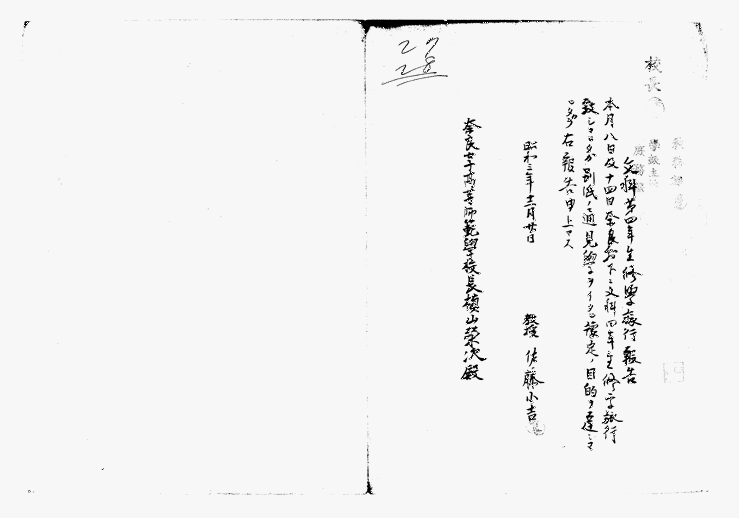 27
28
校長
文科第四年生修學旅行報告
本月八日及十四日奈良縣下ニ文科四年生修学旅行
致シマシタガ別紙ノ通見學ヲイタシ豫定ノ目的ヲ達シマ
シタ 右報告申上マス
昭和三年十二月廿日
教授 佐藤小吉
奈良女子高等師範學校長槇山榮次殿